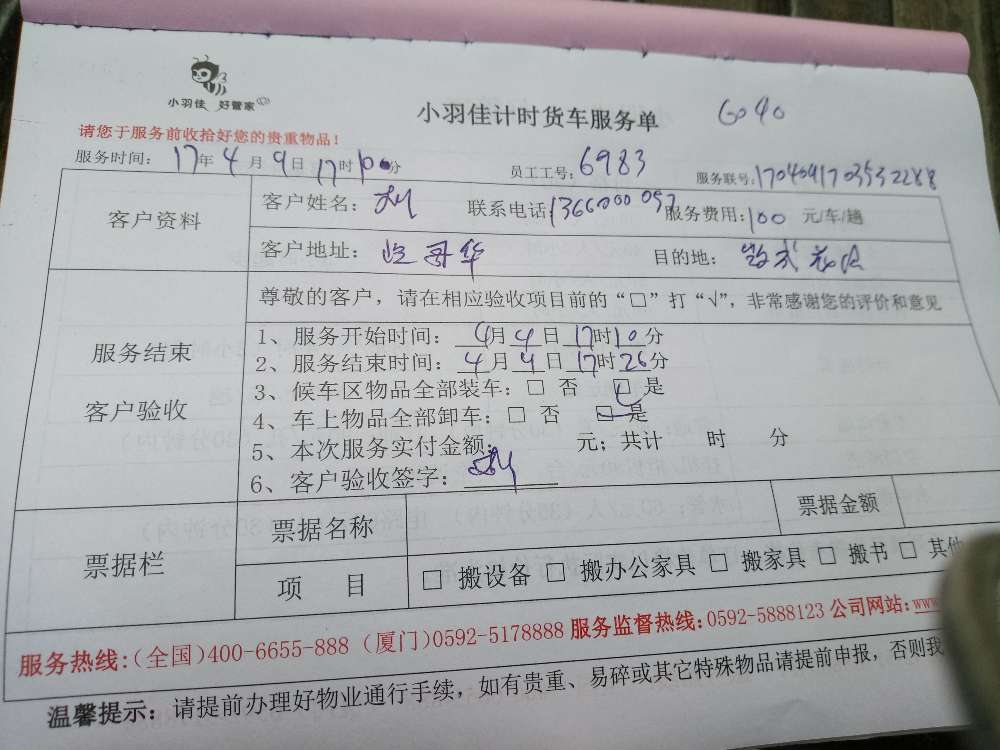 小羽佳 好管家
小羽佳计时货车服务单
请您于服务前收拾好您的贵重物品！
服务时间： 17年4月9日17时10分 员工工号：6983 服务联号：
客户资料 客户姓名：刘 联系电话： 服务费用：100 元/车/趟
客户地址： 目的地：
尊敬的客户，请在相应验收项目前的“□”打“√”，非常感谢您的评价和意见
服务结束
客户验收
1、服务开始时间：4月4日17时10分
2、服务结束时间：4月4日17时26分
3、候车区物品全部装车：□ 否 □ 是
4、车上物品全部卸车：□ 否 □ 是
5、本次服务实付金额： 元；共计 时 分
6、客户验收签字：
票据栏 票据名称 票据金额
项 目 □ 搬设备 □ 搬办公家具 □ 搬家具 □ 搬书 □ 其他
服务热线：（全国）400-6655-888 （厦门）0592-5178888 服务监督热线：0592-5888123 公司网站：www
温馨提示：请提前办理好物业通行手续，如有贵重、易碎或其它特殊物品请提前申报，否则我